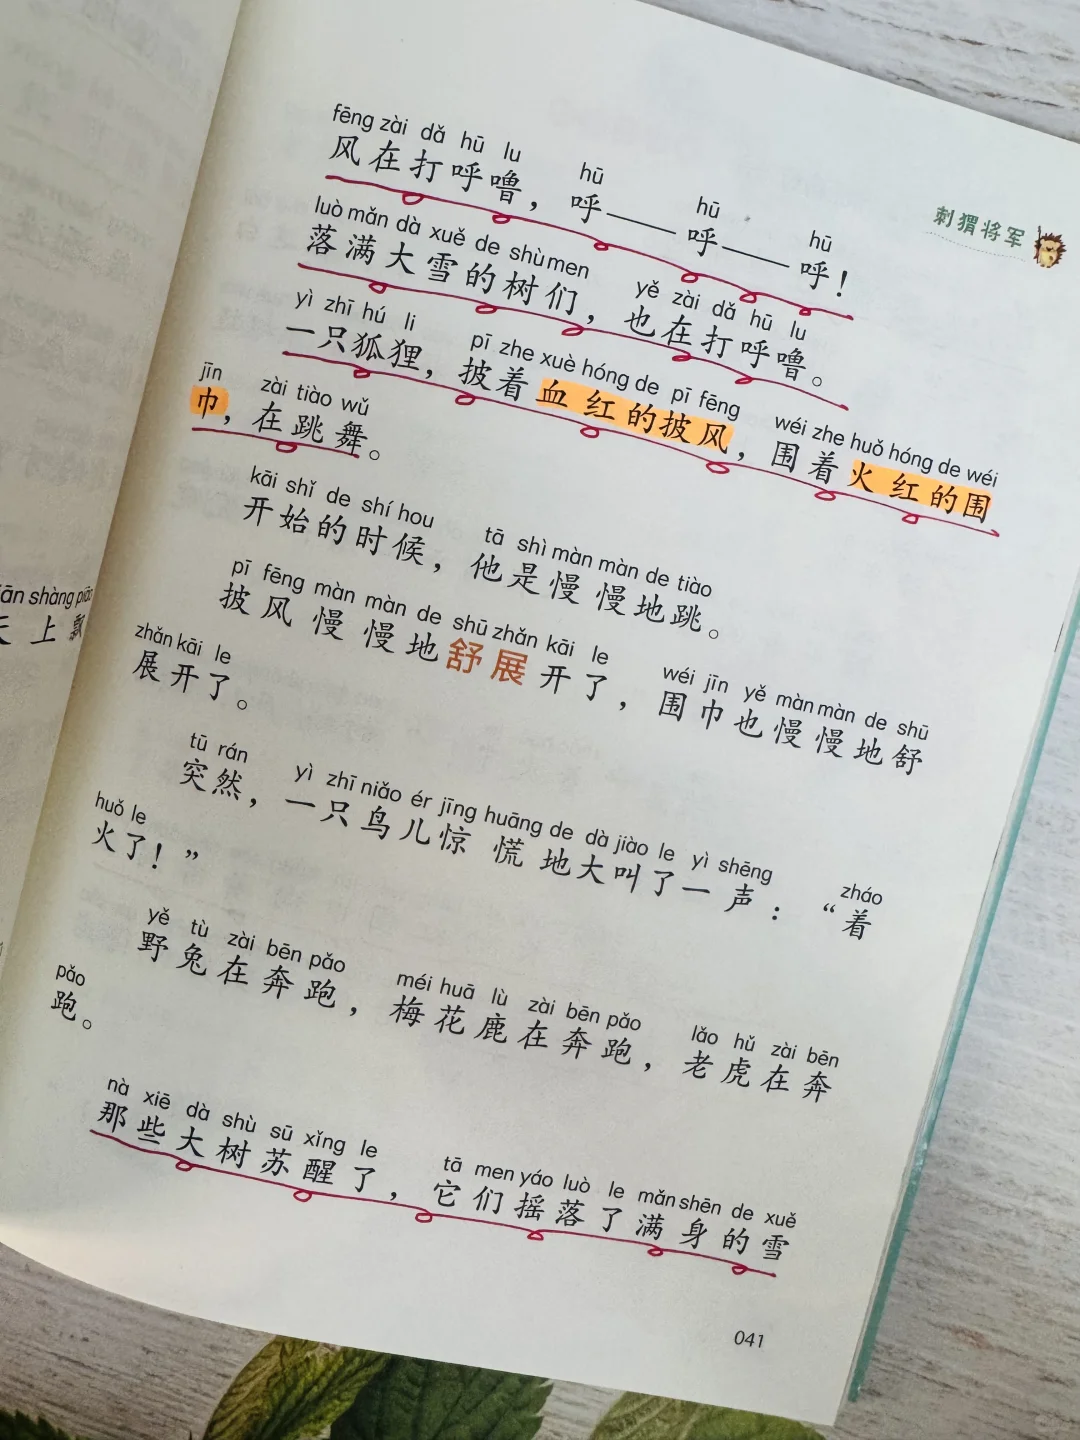 刺猬将军
fēng zài dǎ hū lu hū hū hū
风在打呼噜，呼——呼——呼！
luò mǎn dà xuě de shù men yě zài dǎ hū lu
落满大雪的树们，也在打呼噜。
yì zhī hú li pī zhe xuè hóng de pī fēng wéi zhe huǒ hóng de wéi
一只狐狸，披着血红的披风，围着火红的围
jīn zài tiào wǔ
巾，在跳舞。
kāi shǐ de shí hou tā shì màn màn de tiào
开始的时候，他是慢慢地跳。
pī fēng màn màn de shū zhǎn kāi le wéi jīn yě màn màn de shū
披风慢慢地舒展开了，围巾也慢慢地舒
zhǎn kāi le
展开了。
tū rán yì zhī niǎo ér jīng huāng de dà jiào le yì shēng zháo
突然，一只鸟儿惊慌地大叫了一声：“着
huǒ le
火了！”
yě tù zài bēn pǎo méi huā lù zài bēn pǎo lǎo hǔ zài bēn
野兔在奔跑，梅花鹿在奔跑，老虎在奔
pǎo
跑。
nà xiē dà shù sū xǐng le tā men yáo luò le mǎn shēn de xuě
那些大树苏醒了，它们摇落了满身的雪
041
shàng
上飘